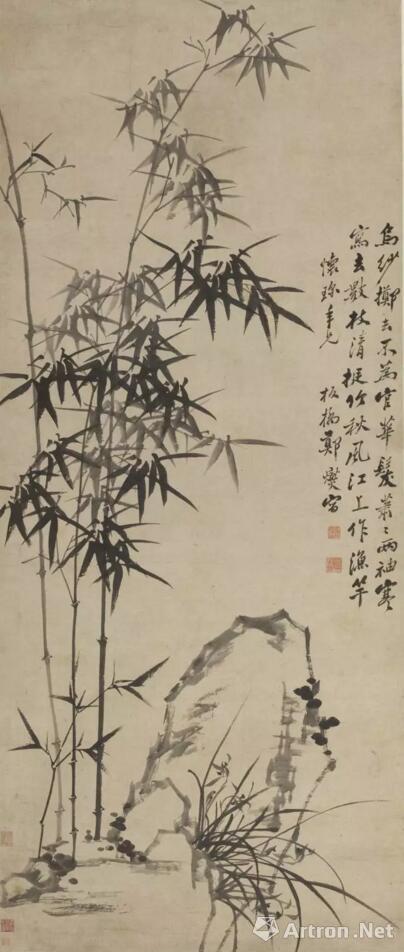 烏紗擲去不為官華髮蕭〻兩袖寒
寫去數枝清挺竹秋風江上作漁竿
懷珎年兄 板橋鄭燮寫
Artron.Net